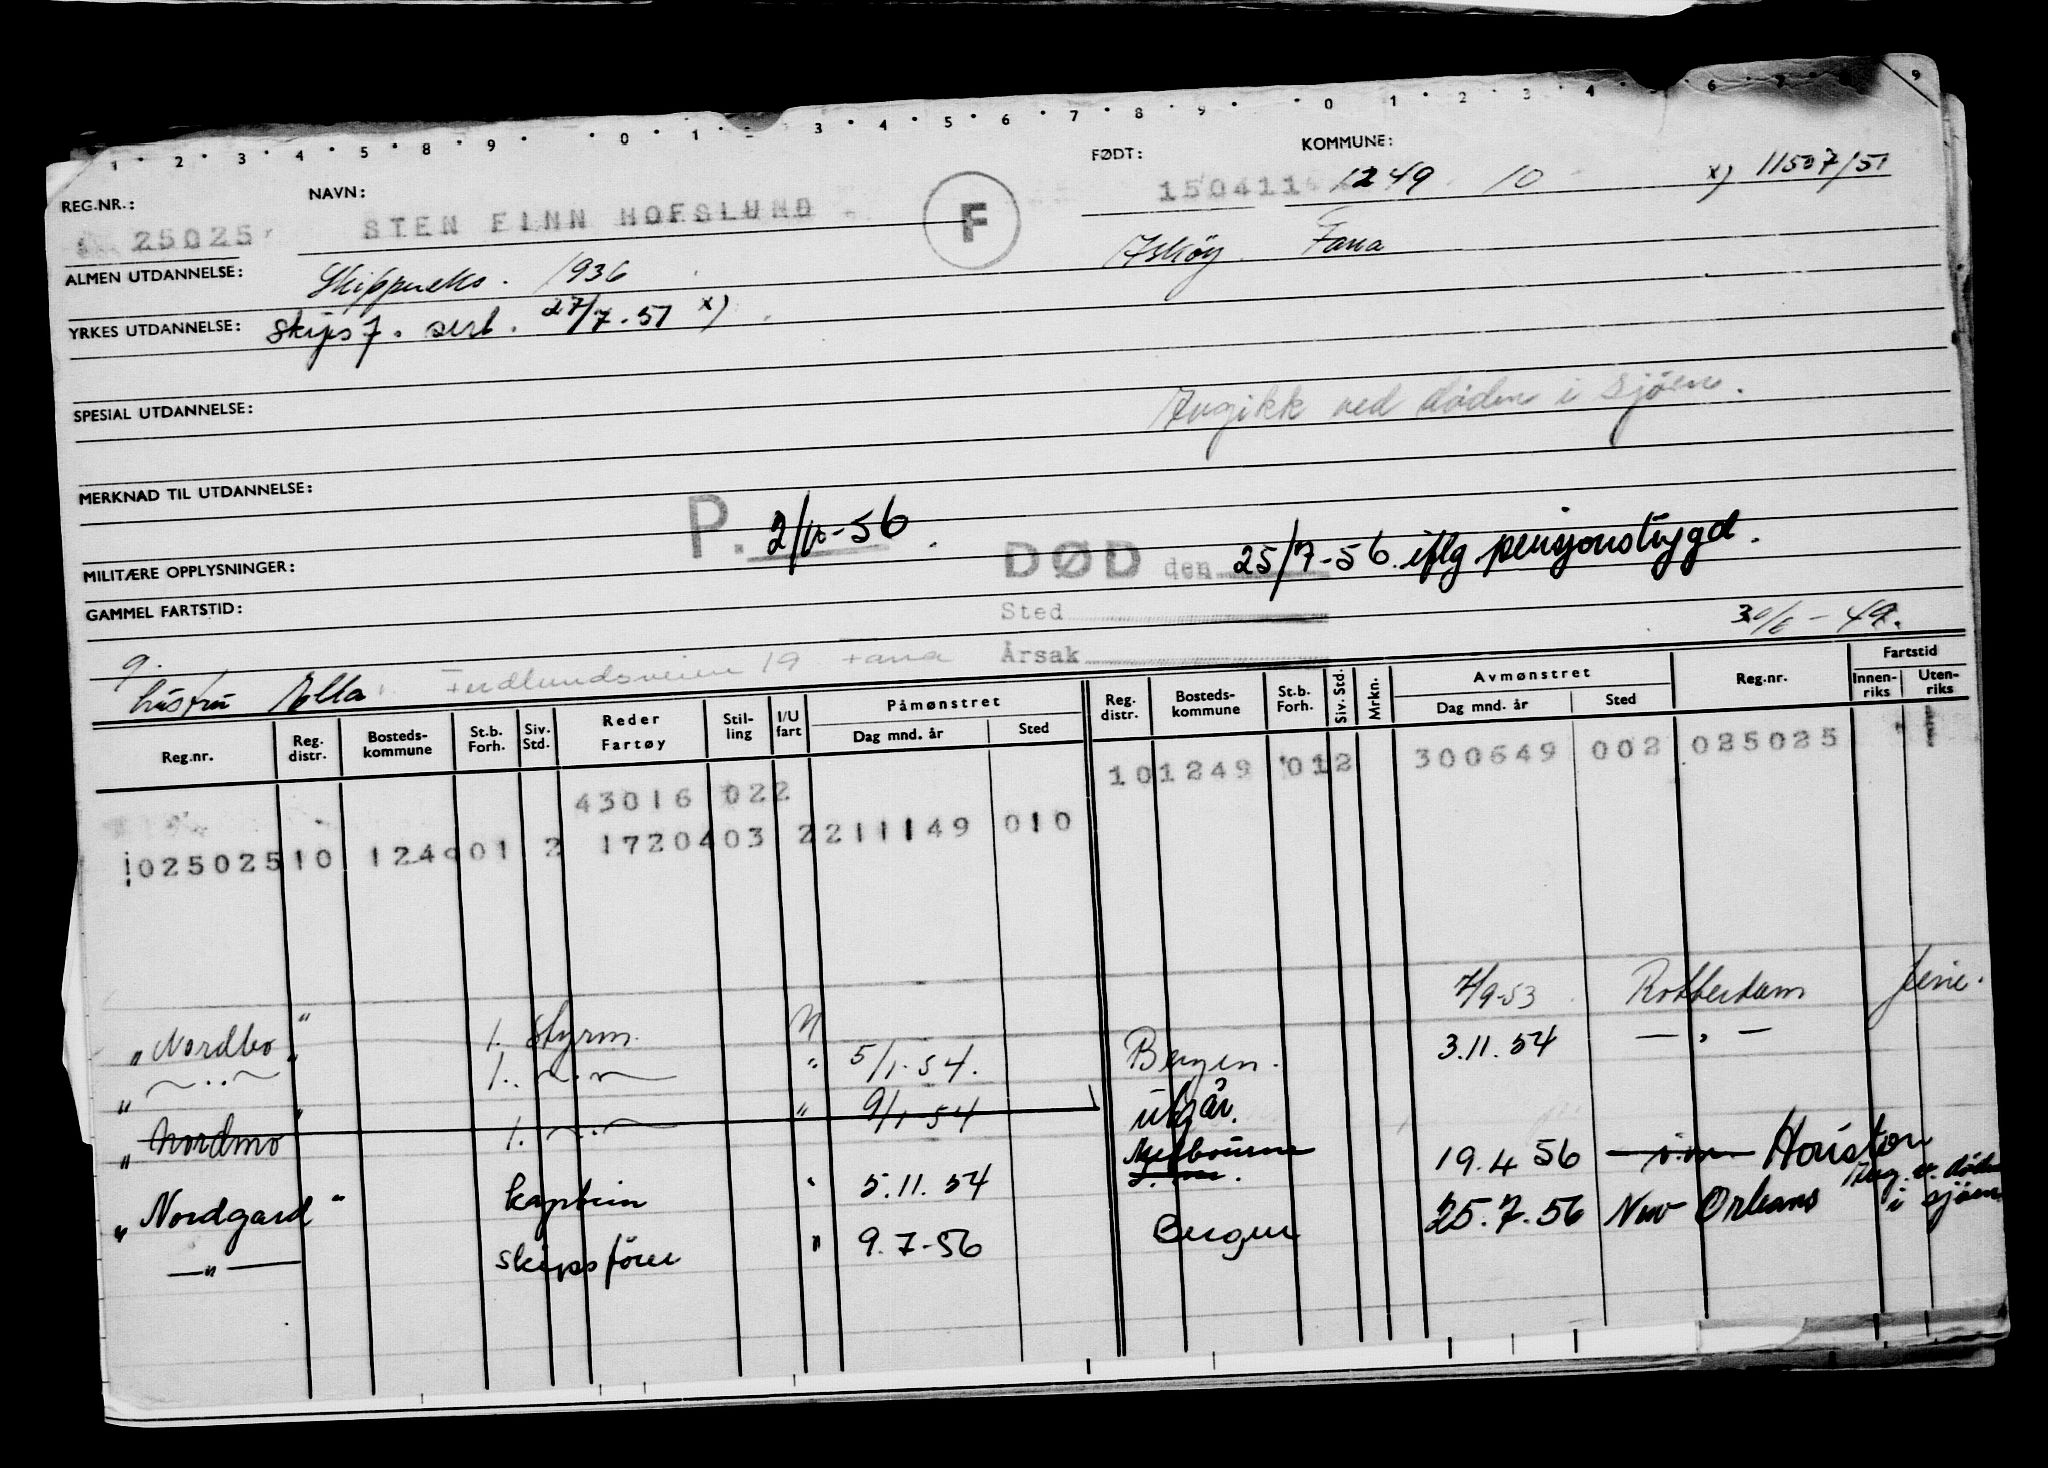 1 · 2 · 3 · 4 · 5 · 8 · 9 · · 0 · 1 · 2 · 3 · 4 · 5 · 6 · 7 · 8 · 9 · · 0 · 1 · 2 · 3 · 4 · 5 · 6 · 7 · 9
REG.NR.: NAVN: FØDT: KOMMUNE:
25025 STEN FINN HOFSLUND F 150411 1249 10 x) 11507/51
Askøy Fana
ALMEN UTDANNELSE: Skippereks. 1936
YRKES UTDANNELSE: Skipsf. sert. 27/7-51 x)
SPESIAL UTDANNELSE:
Avgikk ved døden i sjøen.
MERKNAD TIL UTDANNELSE:
P. 2/10-56
MILITÆRE OPPLYSNINGER: DØD den 25/7-56 iflg pensjonstrygd.
GAMMEL FARTSTID: Sted
30/6-49.
g. Årsak
hustru Ella Fana 19
Reg.nr. Reg. distr. Bosteds- kommune St.b. Forh. Siv. Std. Reder Fartøy Stil- ling I/U fart Påmønstret Dag mnd. år Sted Reg. distr. Bosteds- kommune St.b. Forh. Siv. Std. Mrkn. Avmønstret Dag mnd. år Sted Reg.nr. Fartstid Innen- riks Uten- riks
43016 022 101249 012 300649 002 025025
025025 10 1249 01 2 17204 03 2 211149 010
7/9-53 Rotterdam ferie.
"Nordbo" 1. styrm. U
" — " — " 1. — " — " 5/1-54. Bergen. 3.11.54 — " —
"Nordmo" 1. — " — " 9/1-54 utgår.
"Nordgard" kaptein " 5.11.54 Melbourne 19.4 56 Houston
— " — skipsfører " 9.7-56 Bergen 25.7.56 New Orleans Avg. v. døden i sjøen